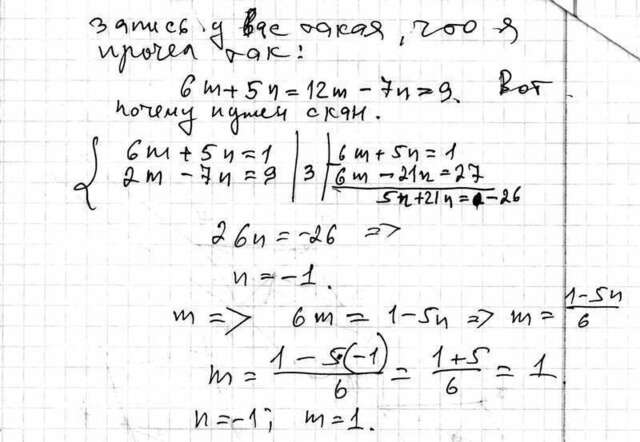 Запись у вас такая, что я
прочел так:
6m+5n=12m-7n=9. Вот
почему нужен скан.
{ 6m+5n=1 | | 6m+5n=1
2m-7n=9 | 3 | 6m-21n=27
5n+21n=-26
26n=-26 =>
n=-1.
m => 6m=1-5n => m=(1-5n)/6
m=(1-5(-1))/6=(1+5)/6=1
n=-1; m=1.